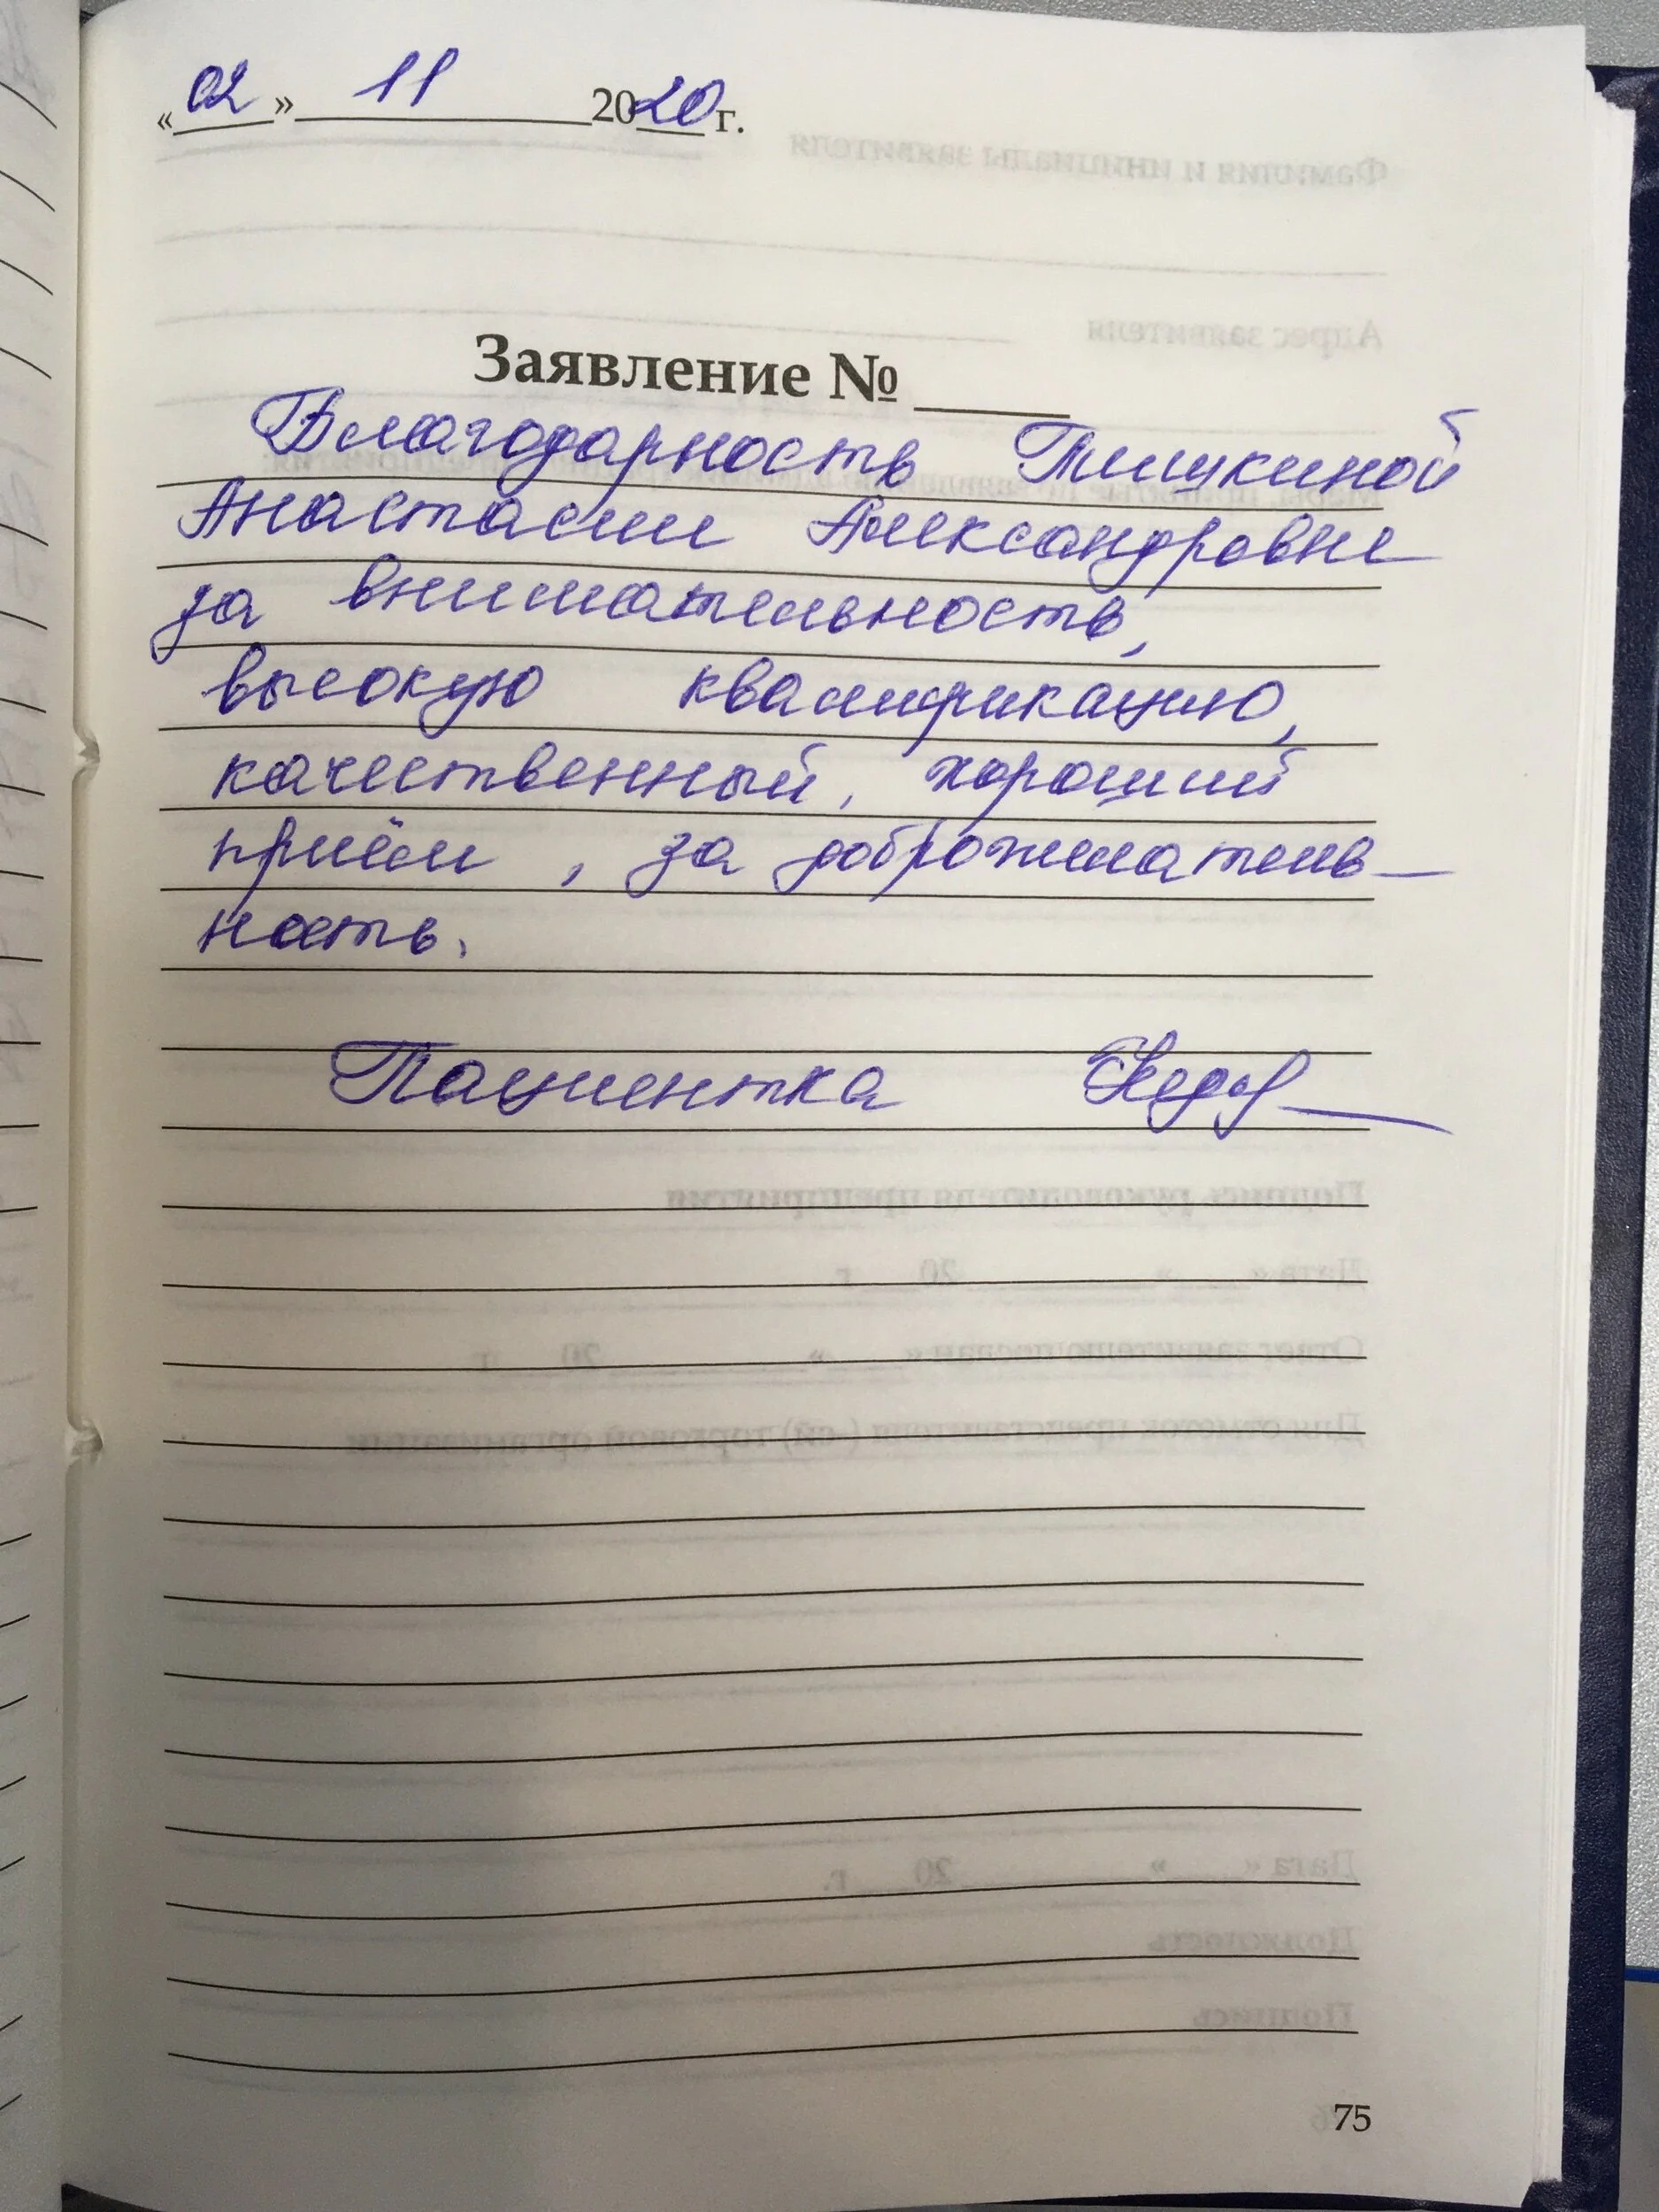 «02» 11 2020 г.
Заявление № ____
Благодарность Тишкиной
Анастасии Александровне
за внимательность,
высокую квалификацию,
качественный, хороший
приём, за доброжелатель-
ность.
Пациентка
75